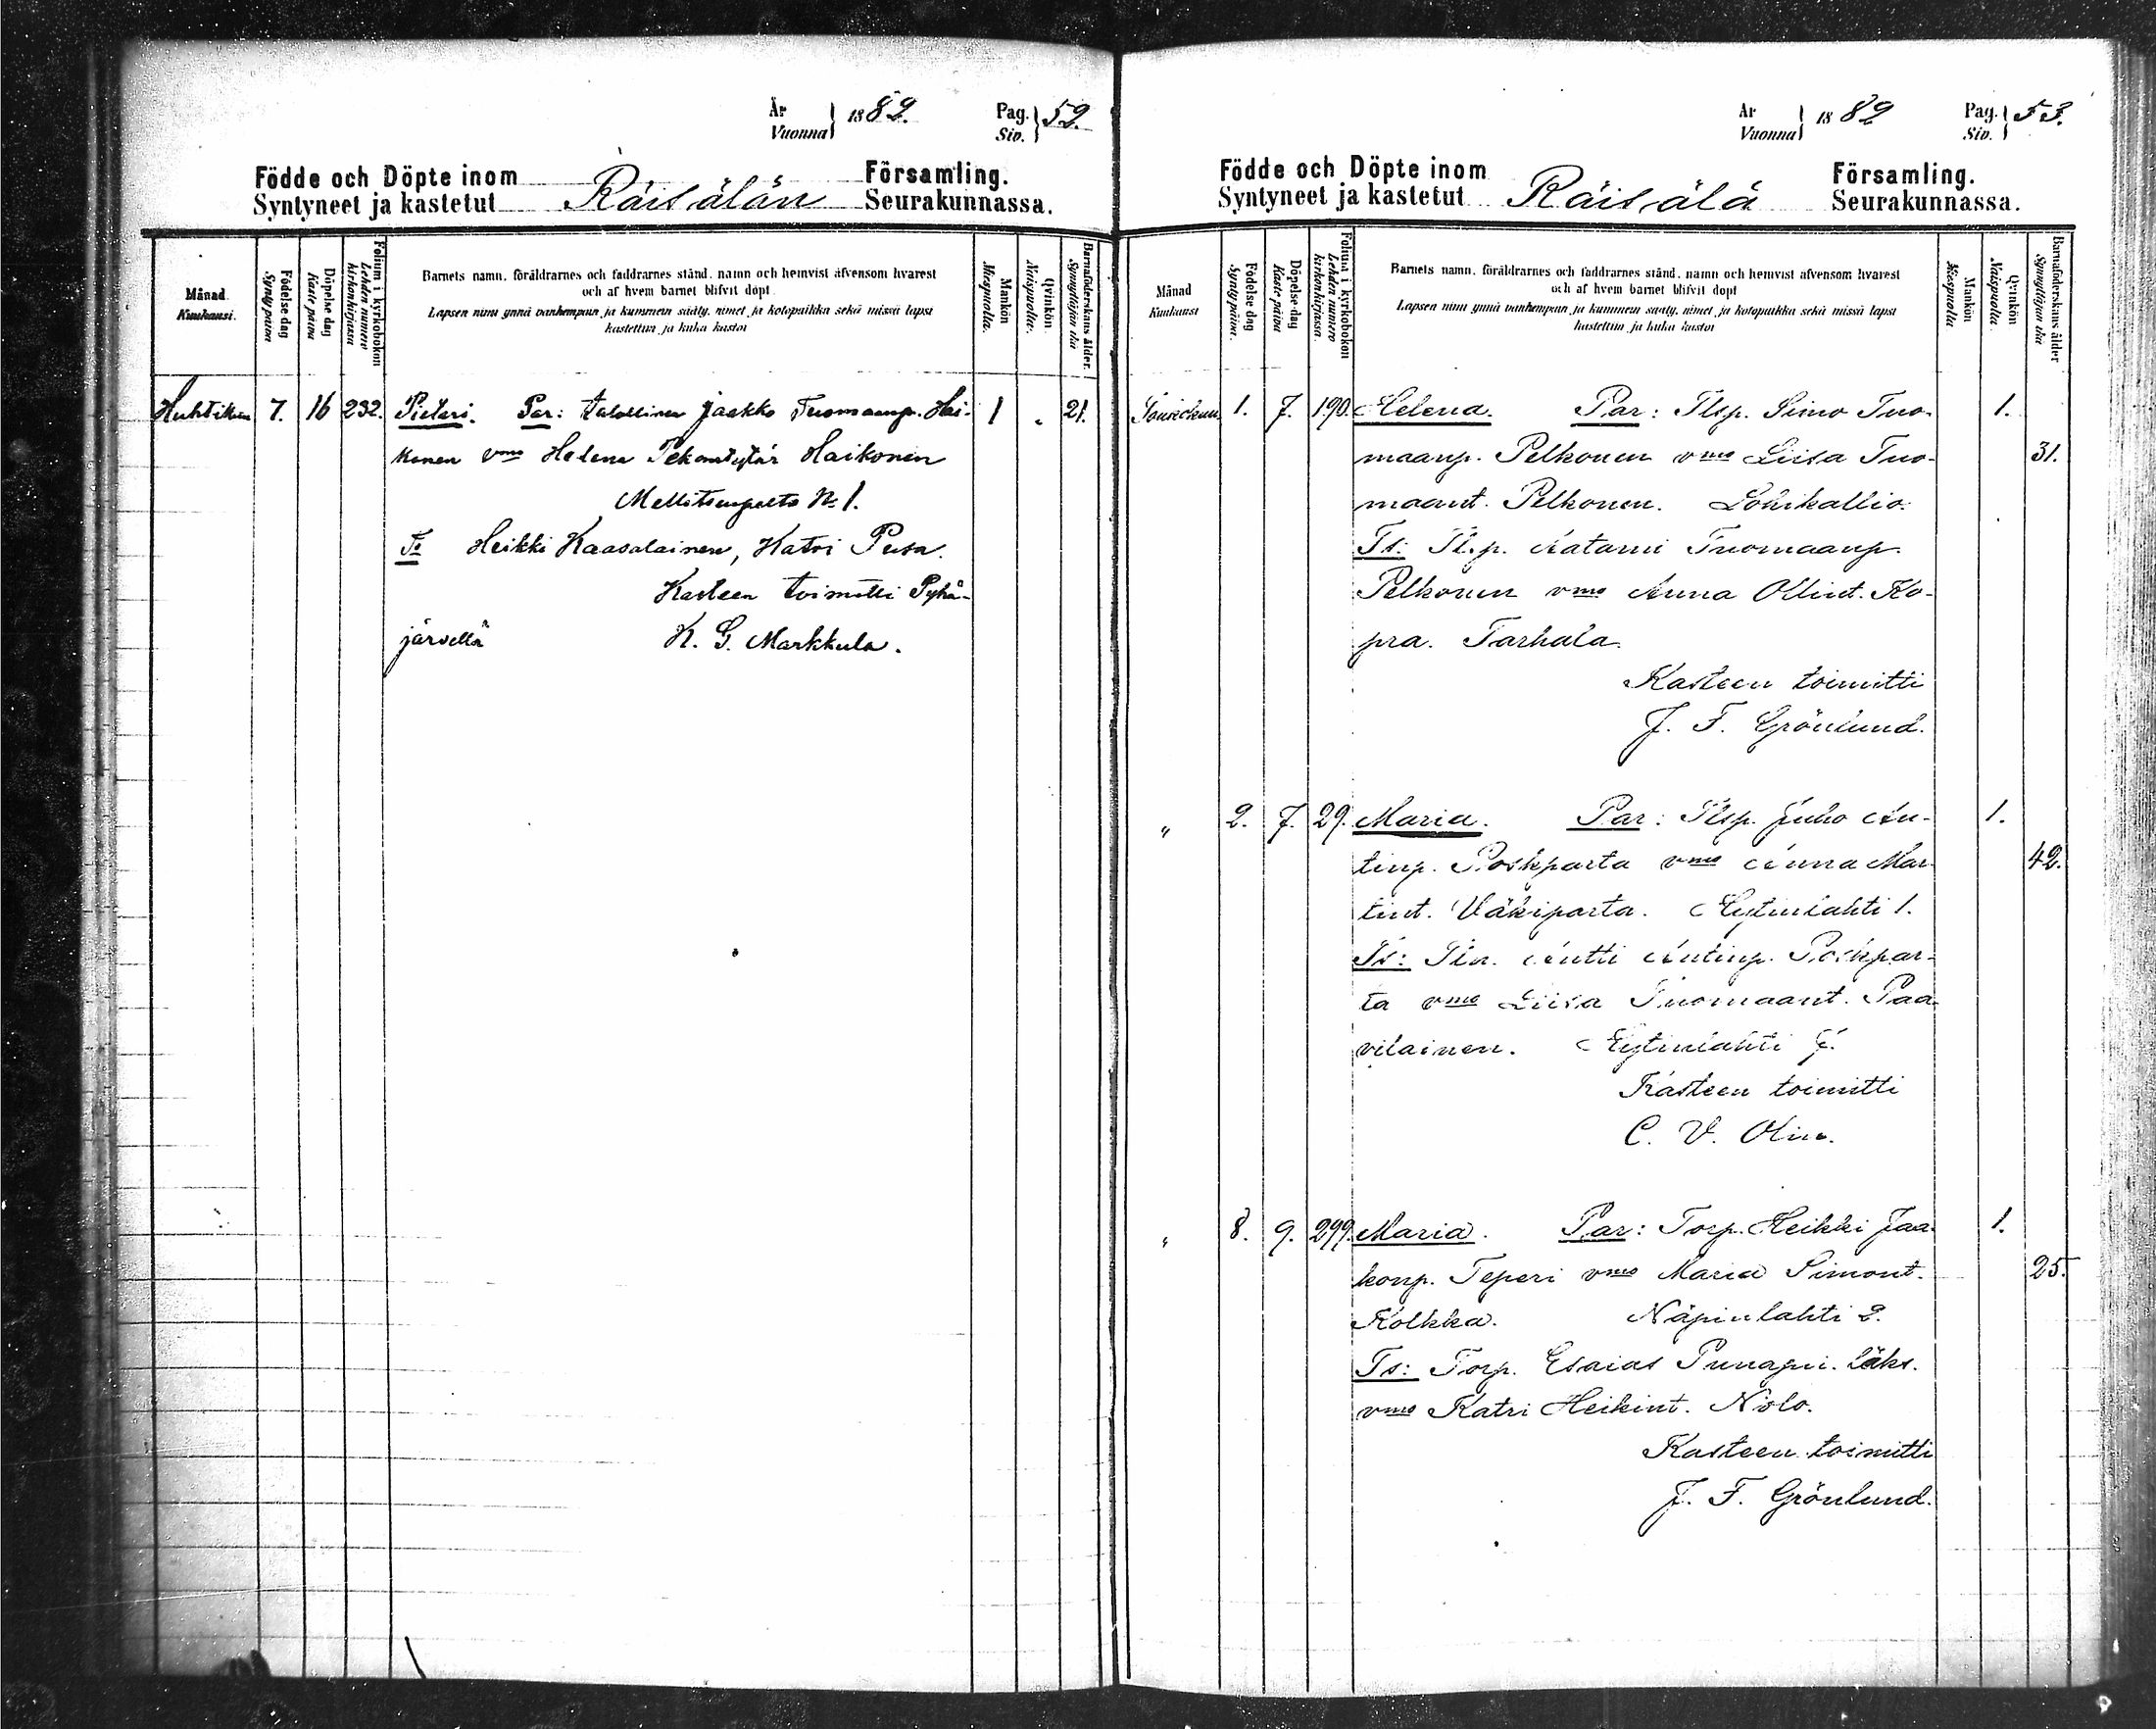 År Vuonna 1882. Pag. Siv. 52.
Födde och Döpte inom Räisälän Församling.
Syntyneet ja kastetut Seurakunnassa.
Månad Kuukausi.
Födelse dag Synty päivä
Döpelse dag Kaste päivä
Folium i kyrkoboken Lehden numero kirkonkirjassa
Barnets namn, föräldrarnes och faddrarnes stånd, namn och hemvist äfvensom hvarest
och af hvem barnet blifvit döpt
Lapsen nimi ynnä vanhempain ja kummein sääty, nimet ja kotopaikka sekä missä lapsi
kastettiin ja kuka kastoi
Mankön Miespuolia.
Qvinkön Naispuolia.
Barnaföderskans ålder. Synnyttäjän ikä
Huhtikuu 7. 16 232. Pietari. Par: talollinen Jaakko Tuomaanp. Hai- 1 „ 21.
konen vmo Helena Pekantytär Haikonen
Mellitsenpelto No 1.
Ts Heikki Kaasalainen, Katri Pusa.
Kasteen toimitti Pyhä-
järvellä K. G. Markkula.
År Vuonna 1882 Pag. Siv. 53.
Födde och Döpte inom Räisälä Församling.
Syntyneet ja kastetut Seurakunnassa.
Månad Kuukausi
Födelse dag Synty päivä.
Döpelse dag Kaste päivä
Folium i kyrkoboken Lehden numero kirkonkirjassa
Barnets namn, föräldrarnes och faddrarnes stånd, namn och hemvist äfvensom hvarest
och af hvem barnet blifvit döpt
Lapsen nimi ynnä vanhempain ja kummein sääty, nimet ja kotopaikka sekä missä lapsi
kastettiin ja kuka kastoi
Mankön Miespuolia
Qvinkön Naispuolia.
Barnaföderskans ålder Synnyttäjän ikä
Toukokuu 1. 7. 190. Helena. Par: Tlsp. Simo Tuo- 1.
maanp. Pelkonen vmo Liisa Tuo- 31.
maant. Pelkonen. Louhikallio.
Ts: Tlsp. Aatami Tuomaanp.
Pelkonen vmo Anna Ollint. Ko-
pra. Tarhala.
Kasteen toimitti
J. F. Grönlund.
„ 2. 7. 29. Maria. Par: Tlsp. Juho An- 1.
tinp. Poskparta vmo Anna Mar- 42.
tint. Väkiparta. Hytinlahti 1.
Ts: Tln. Antti Antinp. Poskpar-
ta vmo Liisa Tuomaant. Paa-
vilainen. Hytinlahti
Kasteen toimitti
C. V. Olin.
„ 8. 9. 299. Maria. Par: Torp. Heikki Jaa- 1.
konp. Teperi vmo Maria Simont. 25.
Kolkka. Näpinlahti 2.
Ts: Torp. Esaias
vmo Katri Heikint. Nolo.
Kasteen toimitti
J. F. Grönlund.